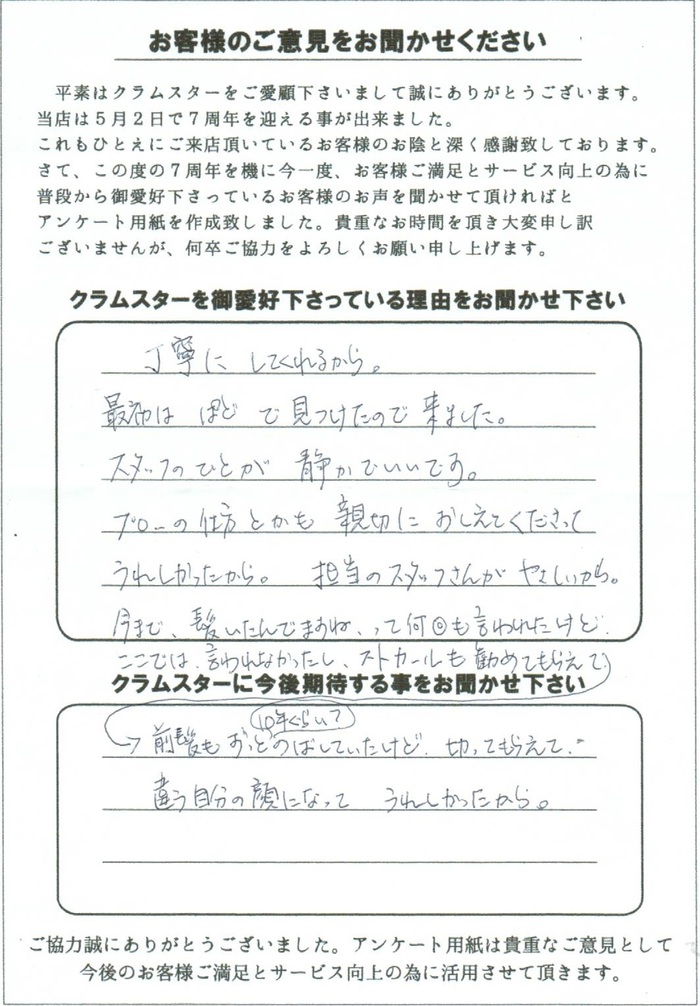 お客様のご意見をお聞かせください
平素はクラムスターをご愛顧下さいまして誠にありがとうございます。
当店は5月2日で7周年を迎える事が出来ました。
これもひとえにご来店頂いているお客様のお陰と深く感謝致しております。
さて、この度の7周年を機に今一度、お客様ご満足とサービス向上の為に
普段から御愛好下さっているお客様のお声を聞かせて頂ければと
アンケート用紙を作成致しました。貴重なお時間を頂き大変申し訳
ございませんが、何卒ご協力をよろしくお願い申し上げます。
クラムスターを御愛好下さっている理由をお聞かせ下さい
丁寧に してくれるから。
最初は ぽど で見つけたので 来ました。
スタッフのひとが 静かでいいです。
ブローの仕方とかも 親切に おしえてくださって
うれしかったから。 担当のスタッフさんが やさしいから。
今まで、髪いたんでますね、って何回も言われたけど、
ここでは、言われなかったし、ストカールも 勧めてもらえて、
クラムスターに今後期待する事をお聞かせ下さい
10年ぐらいて
→前髪も ずっとのばしていたけど、切ってもらえて、
違う自分の顔になって うれしかったから。
ご協力誠にありがとうございました。アンケート用紙は貴重なご意見として
今後のお客様ご満足とサービス向上の為に活用させて頂きます。